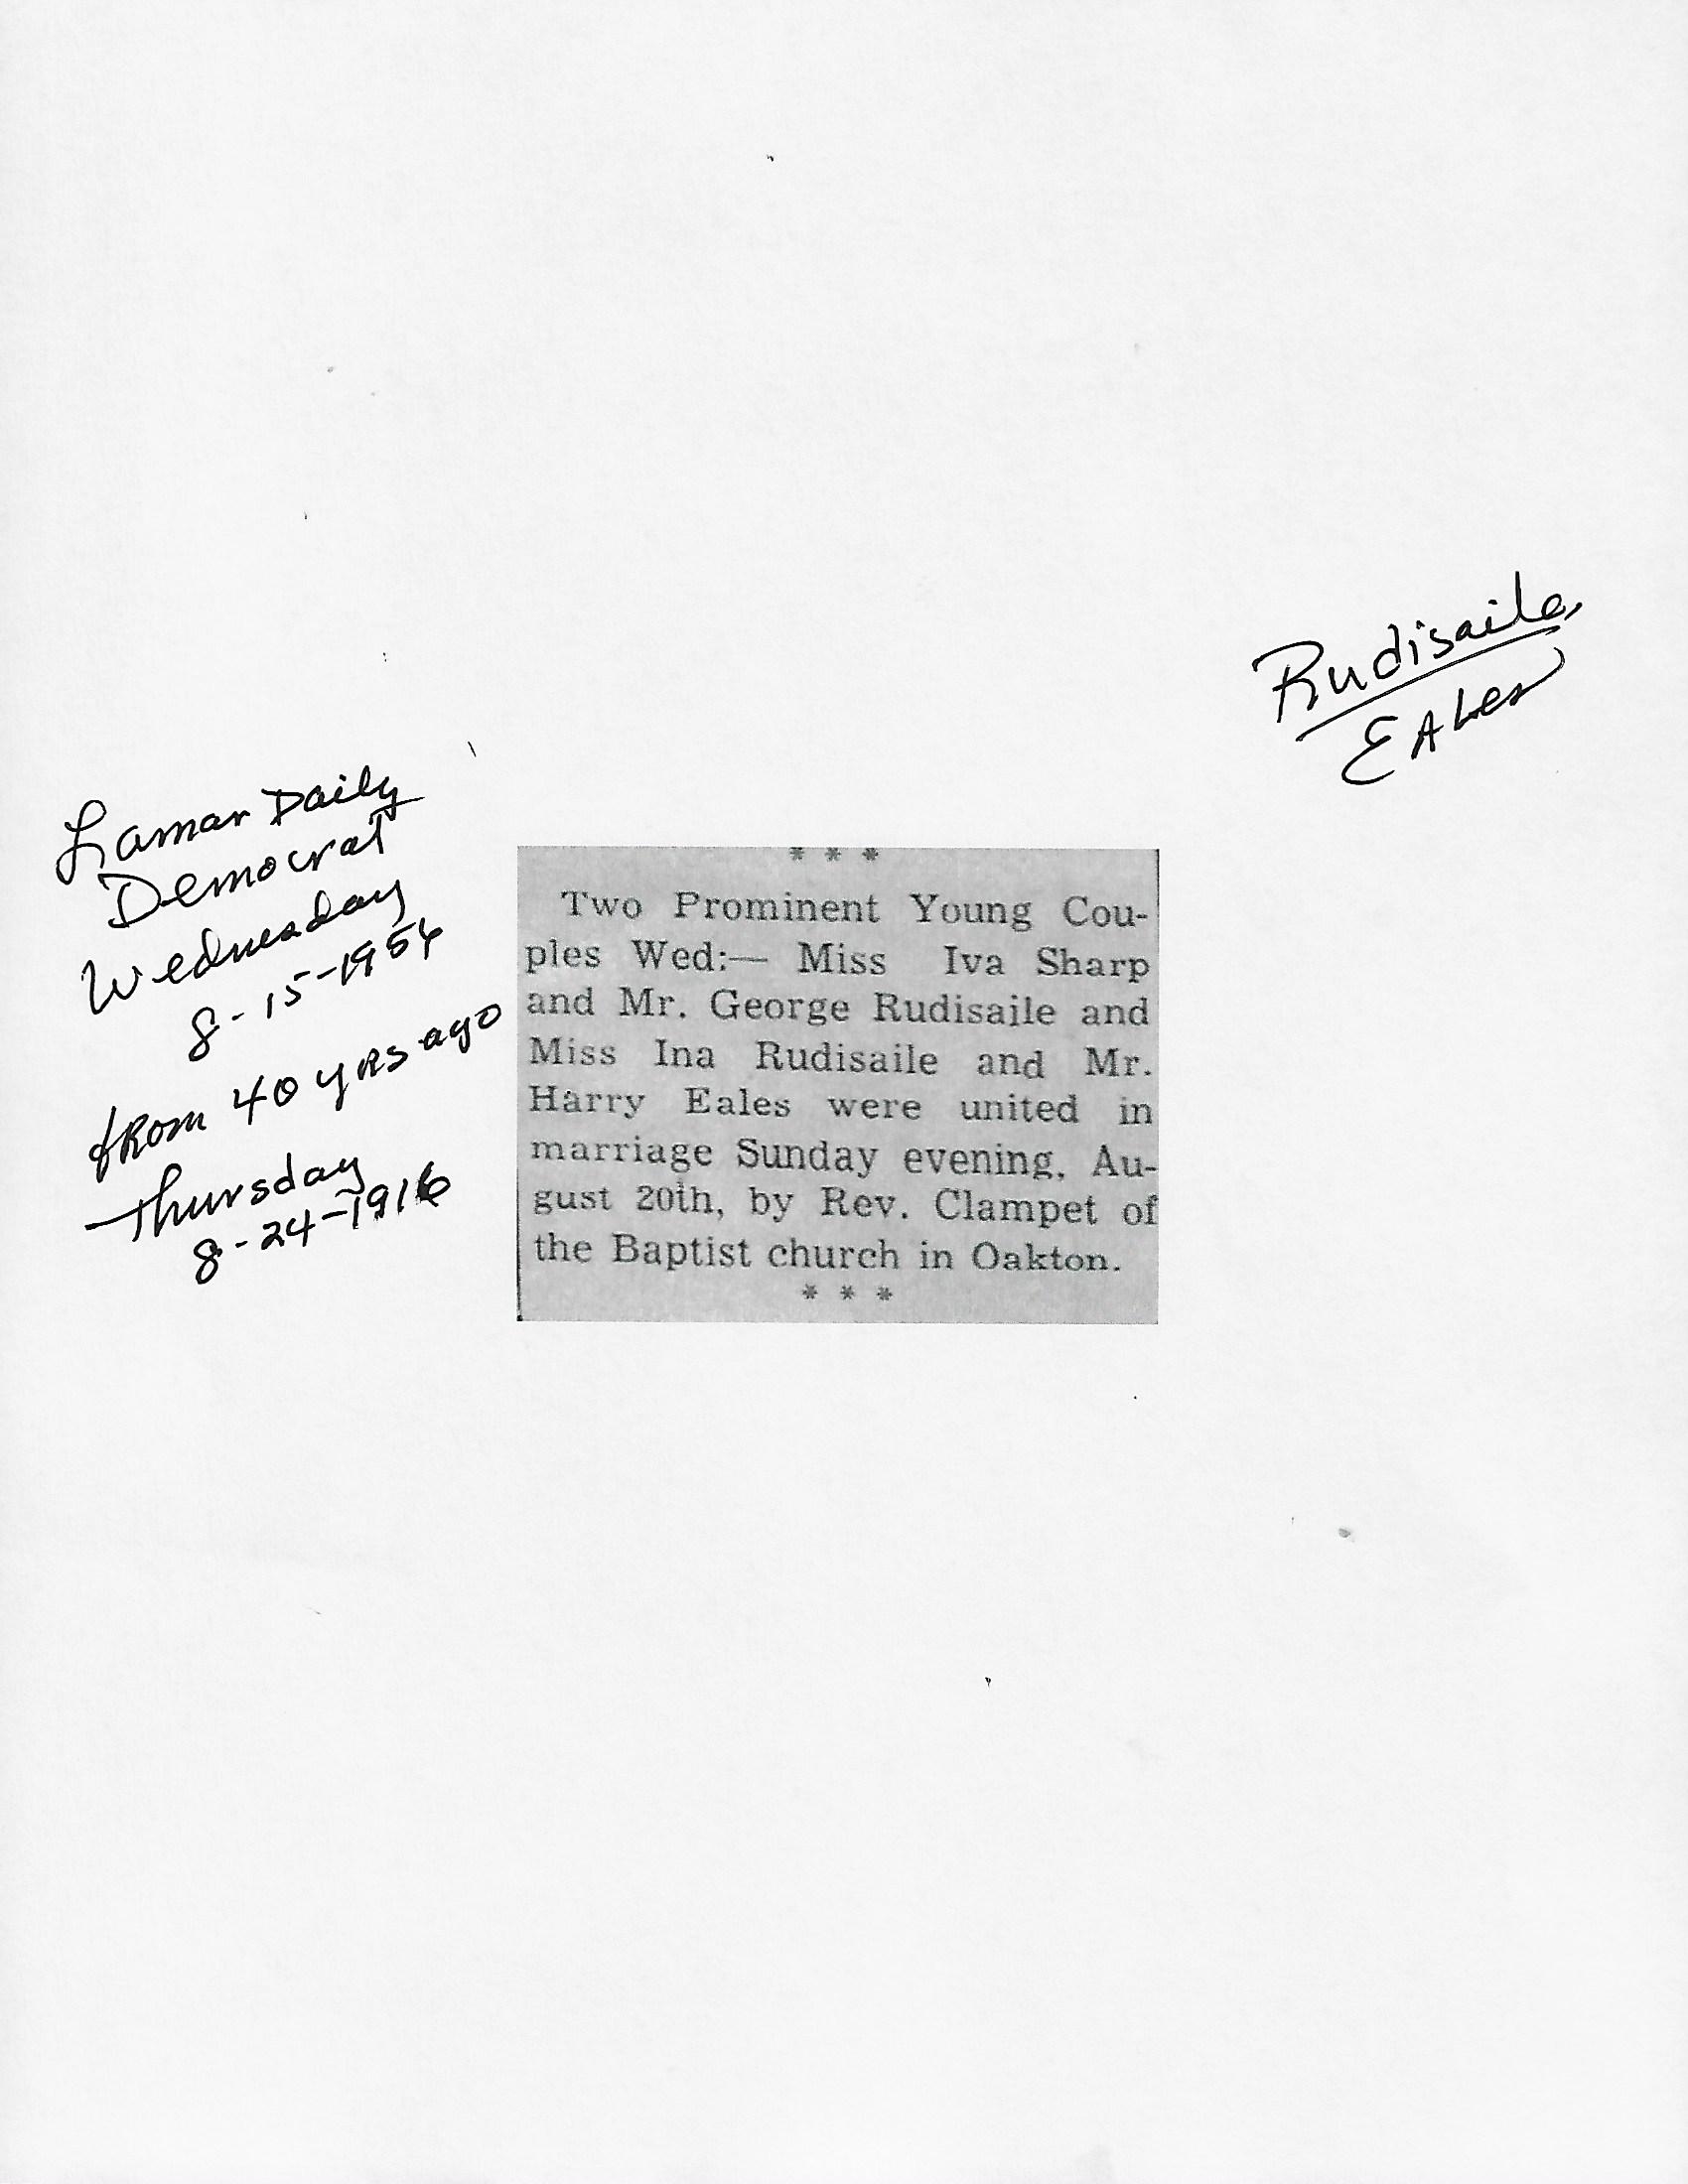 Rudisaile,
Eales
Lamar Daily
Democrat
Wednesday
8-15-1956
from 40 yrs ago
Thursday
8-24-1916
* * *
Two Prominent Young Cou-
ples Wed:— Miss Iva Sharp
and Mr. George Rudisaile and
Miss Ina Rudisaile and Mr.
Harry Eales were united in
marriage Sunday evening, Au-
gust 20th, by Rev. Clampet of
the Baptist church in Oakton.
* * *